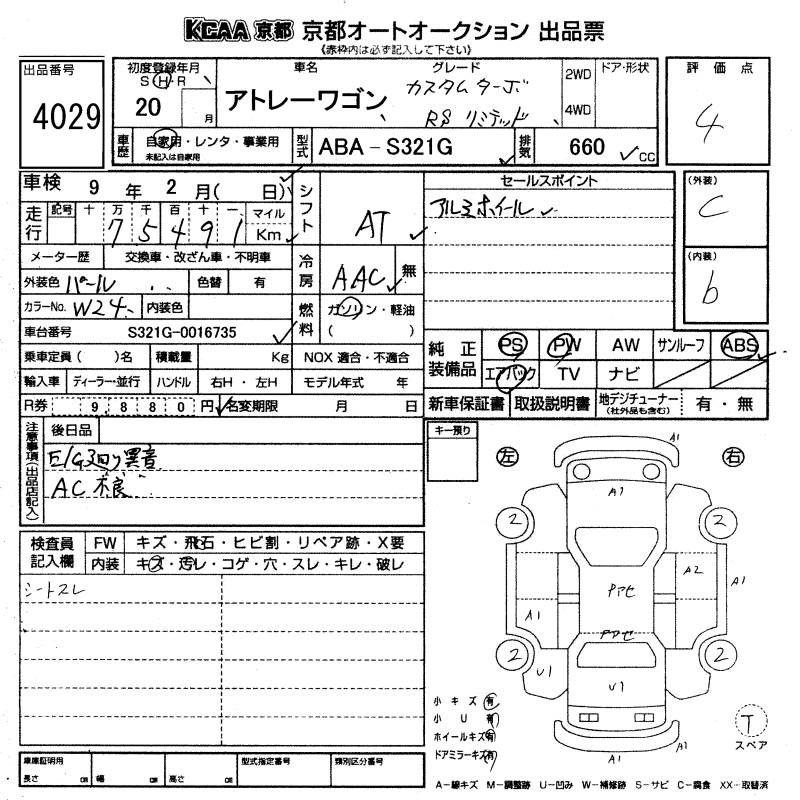 KCAA 京都 京都オートオークション 出品票
(赤枠内は必ず記入して下さい)
出品番号
4029
初度登録年月
S H R
20 月
車名
アトレーワゴン
グレード
カスタム ターボ
RS リミテッド
2WD
4WD
ドア・形状
評価点
4
車歴
自家用・レンタ・事業用
未記入は自家用
型式
ABA-S321G
排気
660 CC
車検 9年 2月( 日)
走行
記号 十 万 千 百 十 一 マイル
7 5 4 9 1 Km
シフト
AT
セールスポイント
アルミホイール
(外装)
C
(内装)
b
メーター歴 交換車・改ざん車・不明車
冷房
AAC 無
外装色 パール 色替 有
カラーNo. W24 内装色
燃料
ガソリン・軽油
( )
車台番号 S321G-0016735
乗車定員( )名 積載量 Kg NOX 適合・不適合
輸入車 ディーラー・並行 ハンドル 右H・左H モデル年式 年
純正装備品
PS PW AW サンルーフ ABS
エアバック TV ナビ
R券 9,880円 名変期限 月 日
新車保証書 取扱説明書 地デジチューナー (社外品も含む) 有・無
注意事項(出品店記入)
後日品
E/G廻り異音
AC不良
キー預り
左
右
A1
A1
2
2
A2
A1
A1
Pアセ
Pアセ
2
2
U1
U1
A1
A1
検査員記入欄
FW キズ・飛石・ヒビ割・リペア跡・X要
内装 キズ・汚レ・コゲ・穴・スレ・キレ・破レ
シートスレ
小キズ 有
小U 有
ホイールキズ 有
ドアミラーキズ 有
T
スペア
車庫証明用
長さ cm 幅 cm 高さ cm
型式指定番号
類別区分番号
A-線キズ M-調整跡 U-凹み W-補修跡 S-サビ C-腐食 XX-取替済